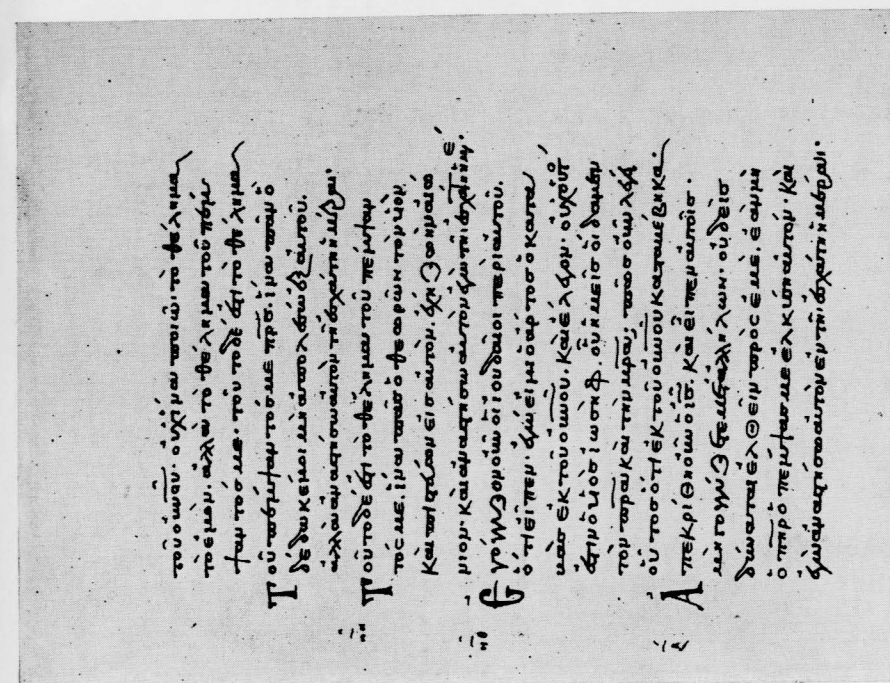 τοῦ οὐνοῦ. οὐχ ἵνα ποιῶ τὸ θέλημα
τὸ ἐμὸν. ἀλλὰ τὸ θέλημα τοῦ πέμ
ψαντός με. τοῦτο δέ ἐστι τὸ θέλημα
Τοῦ πέμψαντός με πρς. ἵνα πᾶν ὃ
δέδωκέ μοι μὴ ἀπολέσω ἐξ αὐτοῦ.
ἀλλὰ ἀναστήσω αὐτὸν τῇ ἐσχάτῃ ἡμέρα
Τοῦτο δέ ἐστι τὸ θέλημα τοῦ πέμψαν
τός με. ἵνα πᾶς ὁ θεωρῶν τὸν υἱὸν
καὶ πιστεύων εἰς αὐτόν. ἔχη ζωὴν αἰώ
νιον. καὶ ἀναστήσω αὐτὸν ἐγὼ τῇ ἐσχάτη ἡμ.
Ἐγόγγυζον οὖν οἱ ἰουδαῖοι περὶ αὐτοῦ.
ὅτι εἶπεν. ἐγώ εἰμι ὁ ἄρτος ὁ κατα
βὰς ἐκ τοῦ οὐνοῦ. καὶ ἔλεγον. οὐχ οὗτο
ἐστιν ὁ υἱὸς ἰωσήφ. οὗ ἡμεῖς οἴδαμεν
τὸν πρα καὶ τὴν μρα; πῶς οὖν λέγει
οὗτος ὅτι ἐκ τοῦ οὐνοῦ καταβέβηκα.
Ἀπεκρίθη οὖν ὁ ις. καὶ εἶπεν αὐτοῖς.
μὴ γογγύζετε μετ ἀλλήλων. οὐδεὶς
δύναται ἐλθεῖν πρός με. ἐὰν μὴ
ὁ πηρ ὁ πέμψας με ἑλκύση αὐτόν. καὶ
ἐγὼ ἀναστήσω αὐτὸν ἐν τῇ ἐσχάτη ἡμέραι.